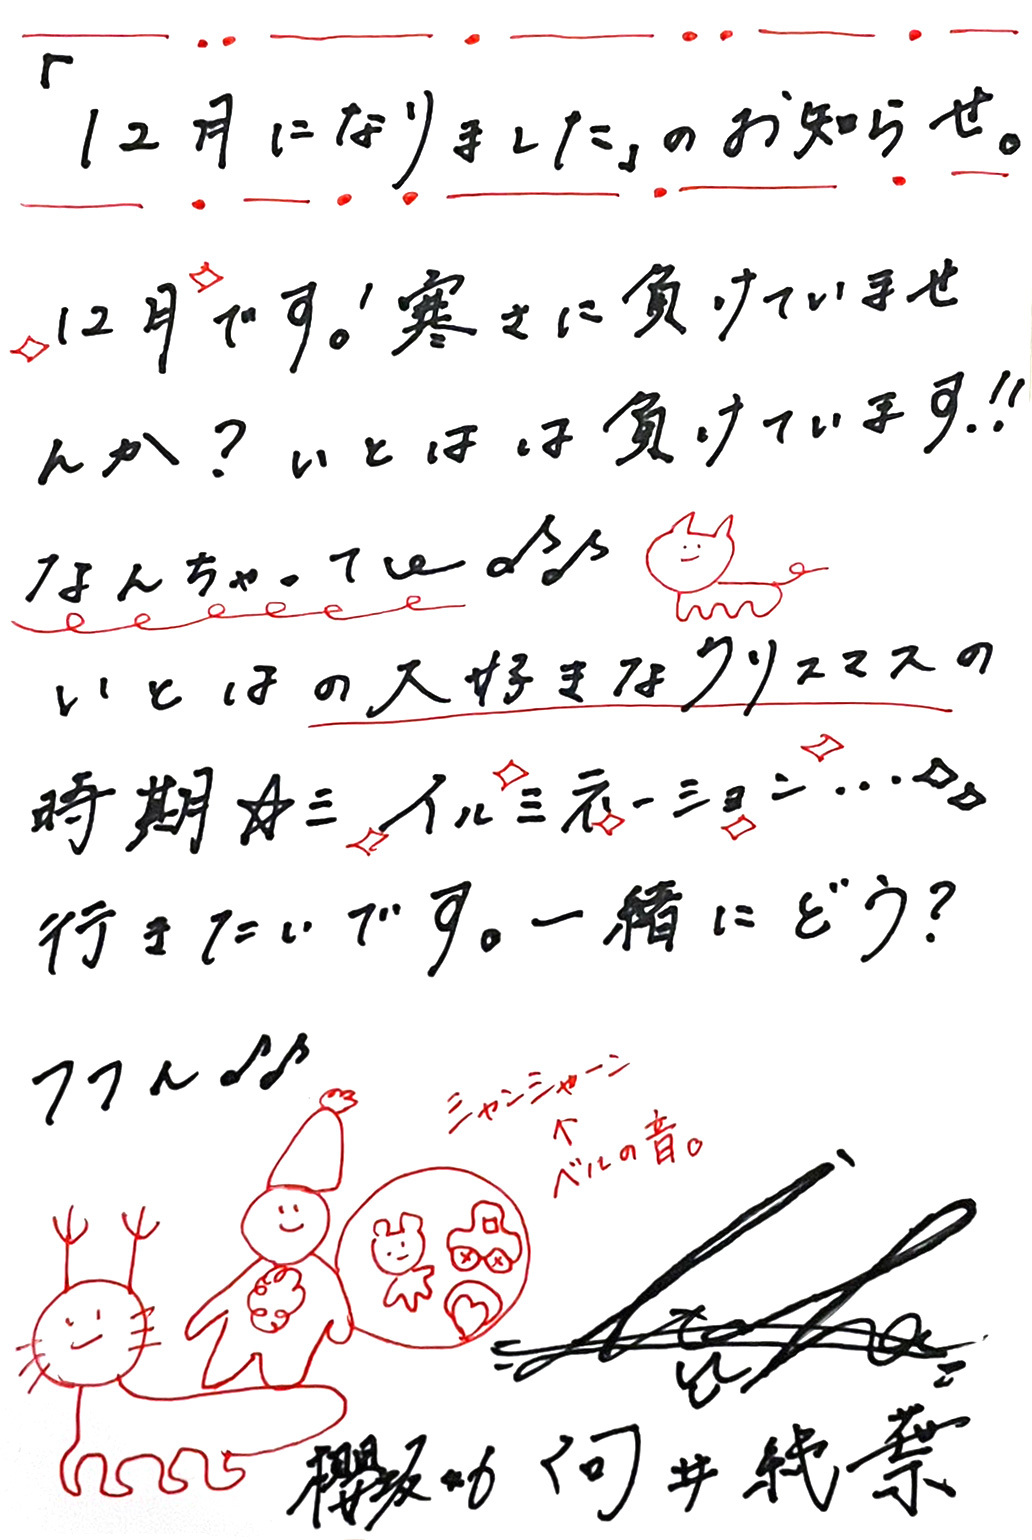 「12月になりました」のお知らせ。
12月です！寒さに負けていませ
んか？いとはは負けています！！
なんちゃってぃ♪♪
いとはの大好きなクリスマスの
時期☆ミ イルミネーション...。
行きたいです。一緒にどう？
フフん♪♪
シャンシャーン
↑
ベルの音。
itoha
櫻坂46 向井純葉